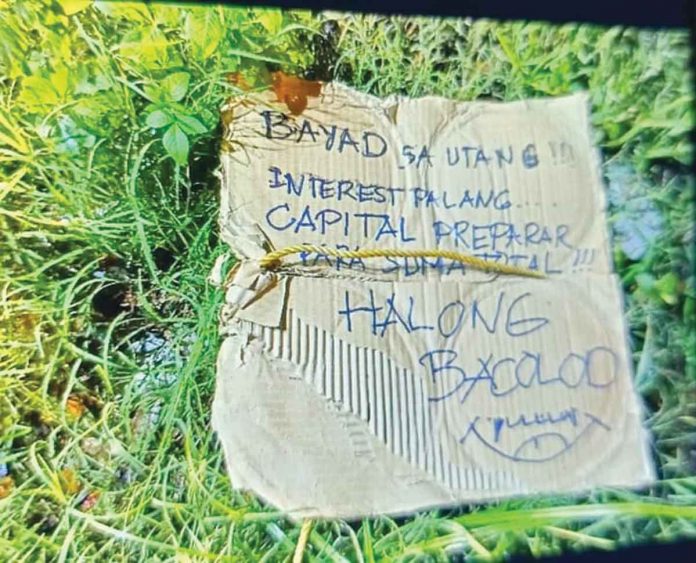 BAYAD SA UTANG !!!
INTEREST PALANG.....
CAPITAL PREPARAR
PARA SUMA TOTAL !!!
HALONG
BACOLOD